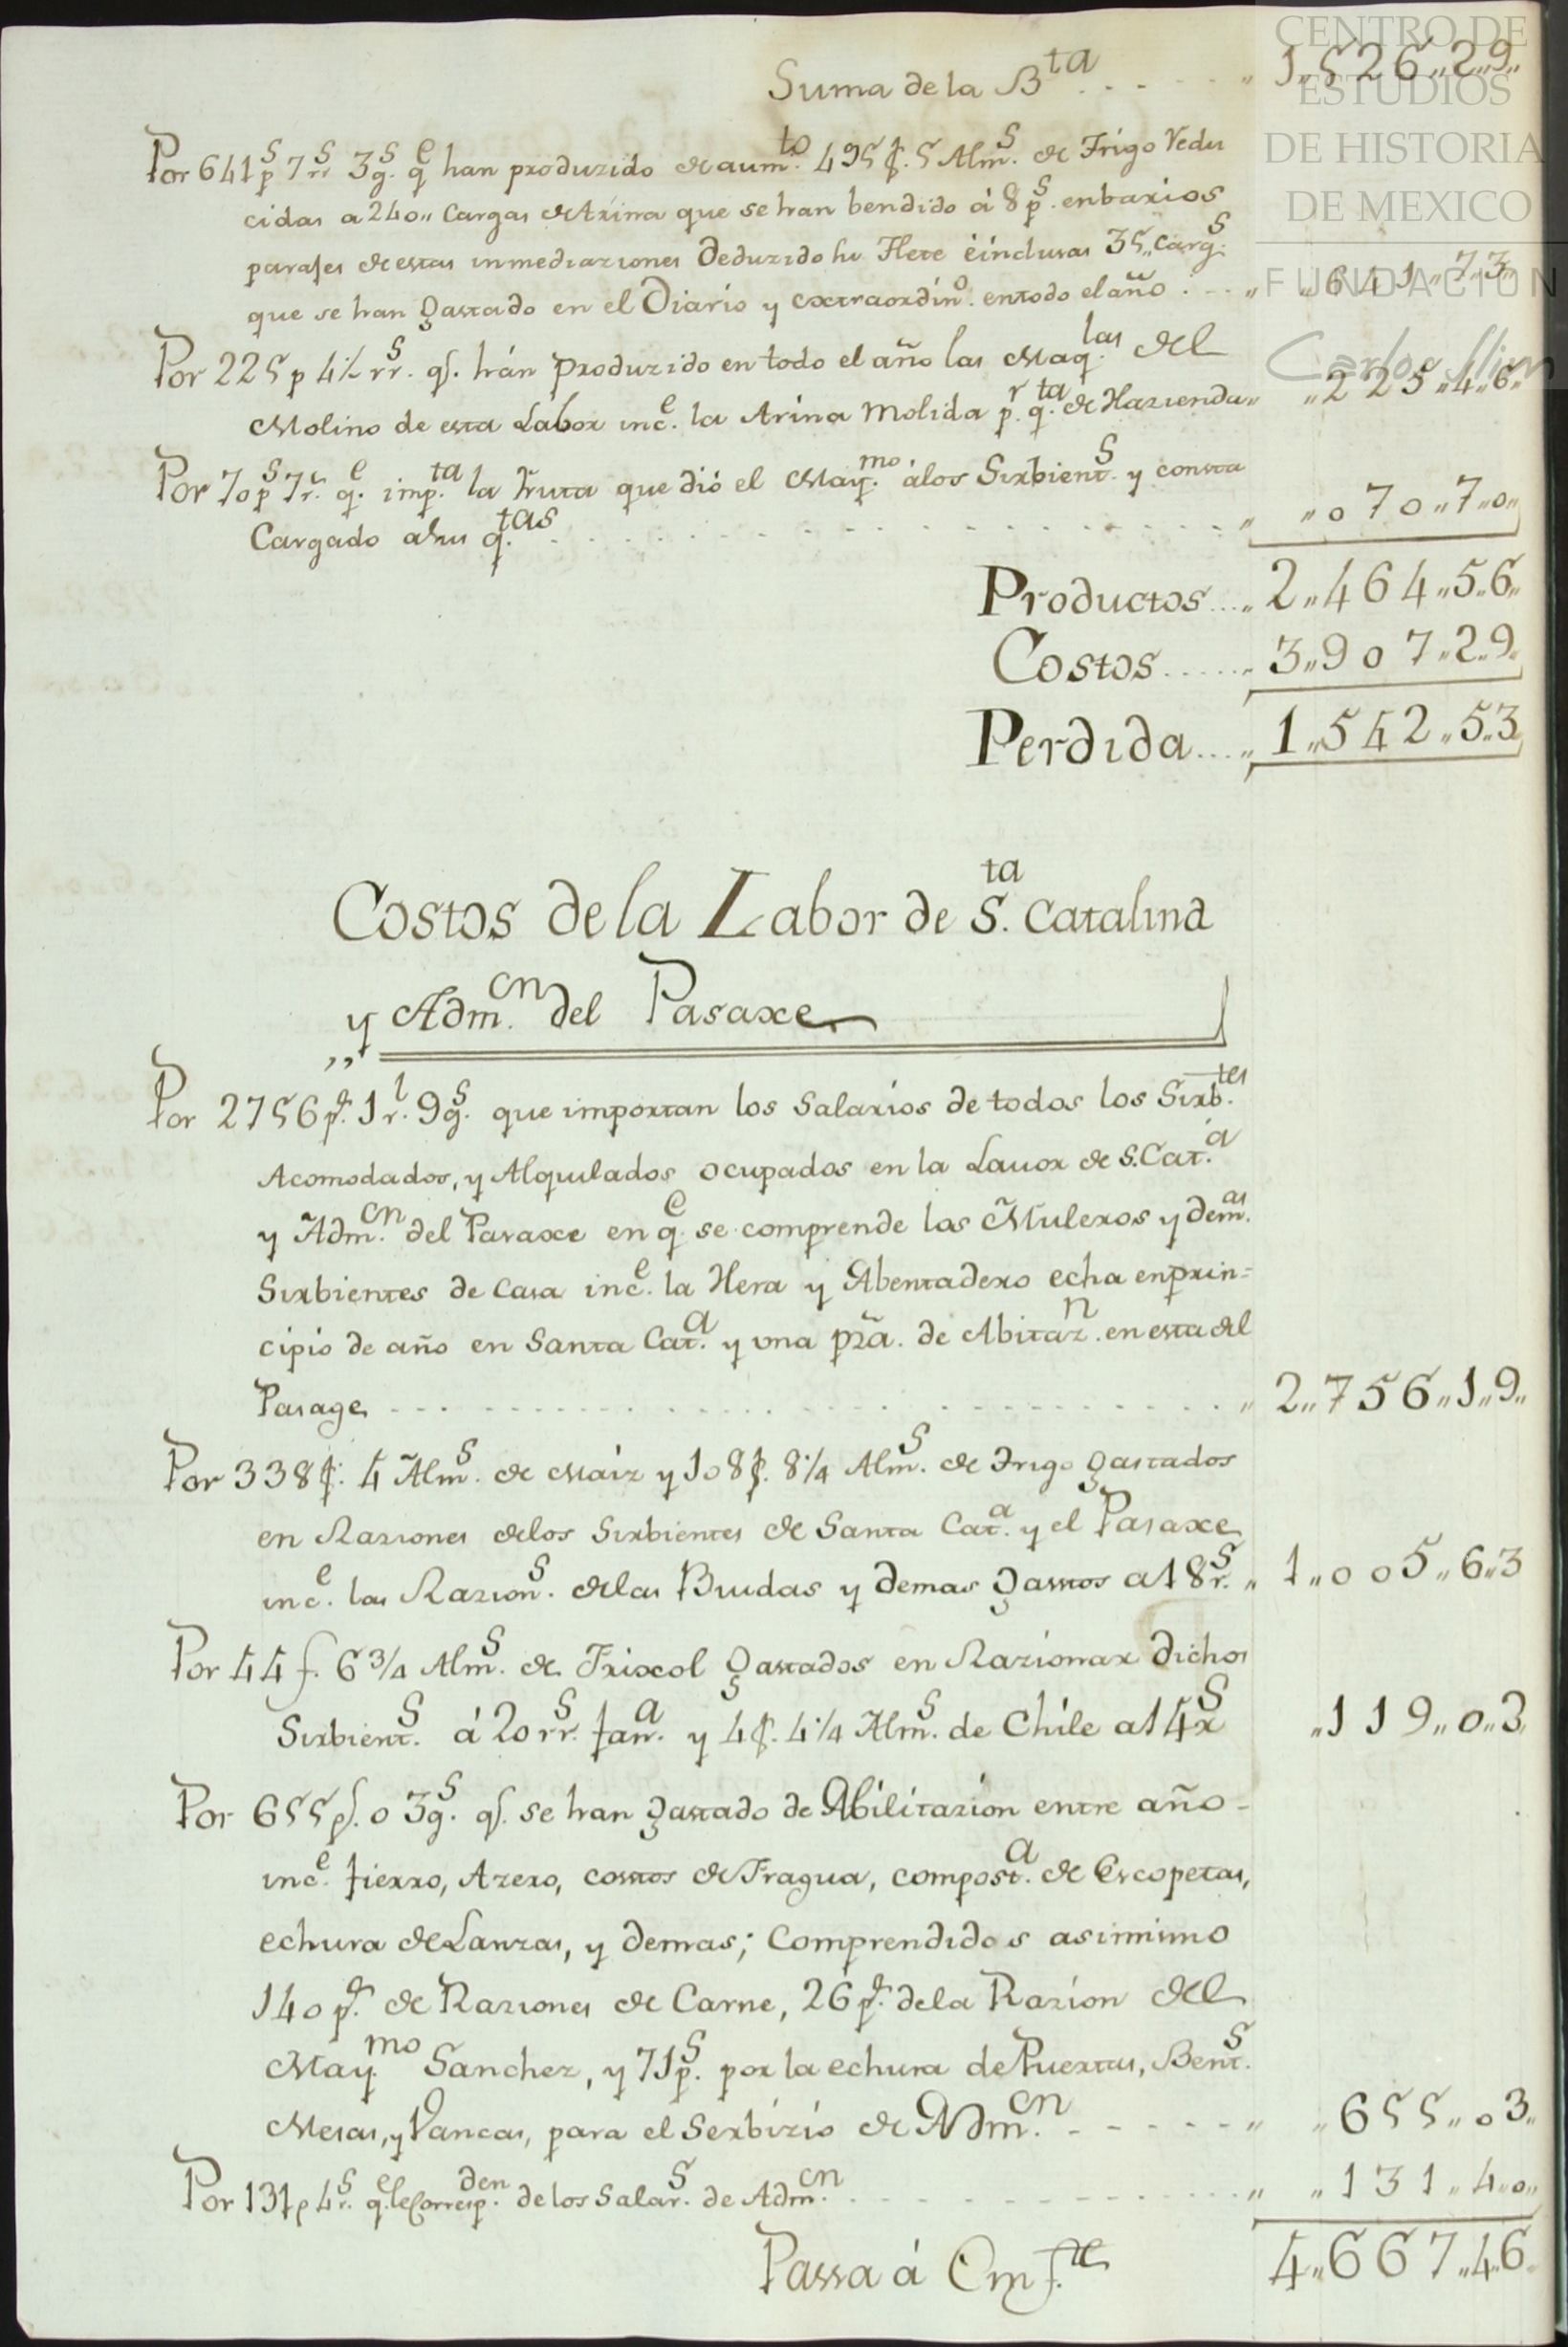 Suma de la B.ta . . . . . „ 1„526„2„9„
Por 641p.s 7rr.s 3g.s q.e han produzido de aum.to 495f. 5 Alm.s de Trigo redu
cidas a 240„ Cargas de Arina que se han bendido á 8p.s en barios
parajes de estas inmediaziones Deduzido su Flete é inclusas 35„ Carg.s
que se han gastado en el Diario y extraordin.o en todo el año . . „ „641„7„3„
Por 225p 4½ rr.s q.e hán produzido en todo el año las Maq.las del
Molino de esta Labor inc.e la Arina molida p.r q.ta de Hazienda„ „225„4„6„
Por 70p.s 7r.s q.e imp.ta la fruta que dió el May.mo álos Sirbient.s y consta
Cargado asus q.tas . . . . . „ „070„7„0„
Productos....„ 2„464„5„6„
Costos......„ 3„907„2„9„
Perdida....„ 1„542„5„3
Costos de la Labor de S.ta Catalina
y Adm.cn del Pasaxe
Por 2756p.s 1r.l 9g.s que importan los Salarios de todos los Sirb.tes
Acomodados, y Alquilados ocupados en la Lauor de S. Cat.a
y Adm.cn del Pasaxe en q.e se comprende los Muleros y dem.as
Sirbientes de Casa inc.e la Hera y Abentadero echa en prin=
cipio de año en Santa Cat.a y una pza. de Abitaz.n en esta del
Pasage . . . . . „ 2„756„1„9„
Por 338f. 4 Alm.s de Maiz y 108f. 8¼ Alm.s de Trigo gastados
en Raziones delos Sirbientes de Santa Cat.a y el Pasaxe
inc.e las Razion.s delas Biudas y demas gastos a 18r.s „ 1„005„6„3
Por 44f. 6¾ Alm.s de Frixol gastados en Razionar dichos
Sirbient.s á 20rr.s fan.a y 4f. 4¼ Alm.s de Chile a 14r.s „119„0„3„
Por 655p.s 0 3g.s q.e se han gastado de Abilitazion entre año -
inc.e fierro, Azero, costos de Fragua, compost.a de Escopetas,
echura de Lanzas, y demas; Comprendidos asimimo
140p.s de Raziones de Carne, 26p.s dela Razion del
May.mo Sanchez, y 71p.s por la echura de Puertas, Bent.s
Mesas, y Vancas, para el Serbizio de Adm.cn . . . . . „ „655„03„
Por 131p 4r.s q.e le Corresp.den de los Salar.s de Adm.cn . . . . . „ „131„4„0„
Passa á Em f.te 4„667„4„6„
CENTRO DE
ESTUDIOS
DE HISTORIA
DE MEXICO
FUNDACION
Carlos Slim